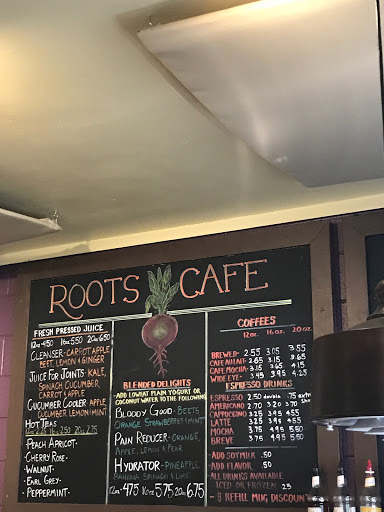 ROOTS CAFE
FRESH PRESSED JUICE
12oz 4.50 16oz 5.50 20oz 6.50
CLEANSER- CARROT, APPLE
BEET, LEMON & GINGER
JUICE FOR JOINTS- KALE,
SPINACH CUCUMBER,
CARROT & APPLE
CUCUMBER COOLER- APPLE,
CUCUMBER, LEMON & MINT
HOT TEAS
PEACH APRICOT·
·CHERRY ROSE·
·WALNUT·
·EARL GREY·
·PEPPERMINT·
BLENDED DELIGHTS
-ADD LOWFAT PLAIN YOGURT OR
COCONUT WATER TO THE FOLLOWING
BLOODY GOOD- BEETS
ORANGE STRAWBERRIES & MINT
PAIN REDUCER- ORANGE,
APPLE, LEMON & PEAR
HYDRATOR- PINEAPPLE,
BANANA, SPINACH & LIME
12oz 4.75 16oz 5.75 20oz 6.75
COFFEES
12oz. 16oz. 20oz.
BREWED- 2.55 3.05 3.55
CAFE AU LAIT- 2.65 3.15 3.65
CAFE MOCHA- 3.15 3.65 4.15
WIDE EYE- 3.45 3.95 4.25
ESPRESSO DRINKS
ESPRESSO 2.50 double .75
AMERICANO 2.70 3.20 3.70
CAPPUCCINO 3.25 3.95 4.55
LATTE 3.25 3.95 4.55
MOCHA 3.75 4.95 5.50
BREVE 3.75 4.95 5.50
-ADD SOYMILK .50
-ADD FLAVOR .50
-ALL DRINKS AVAILABLE
ICED OR FROZEN .25
-$ REFILL MUG DISCOUNT